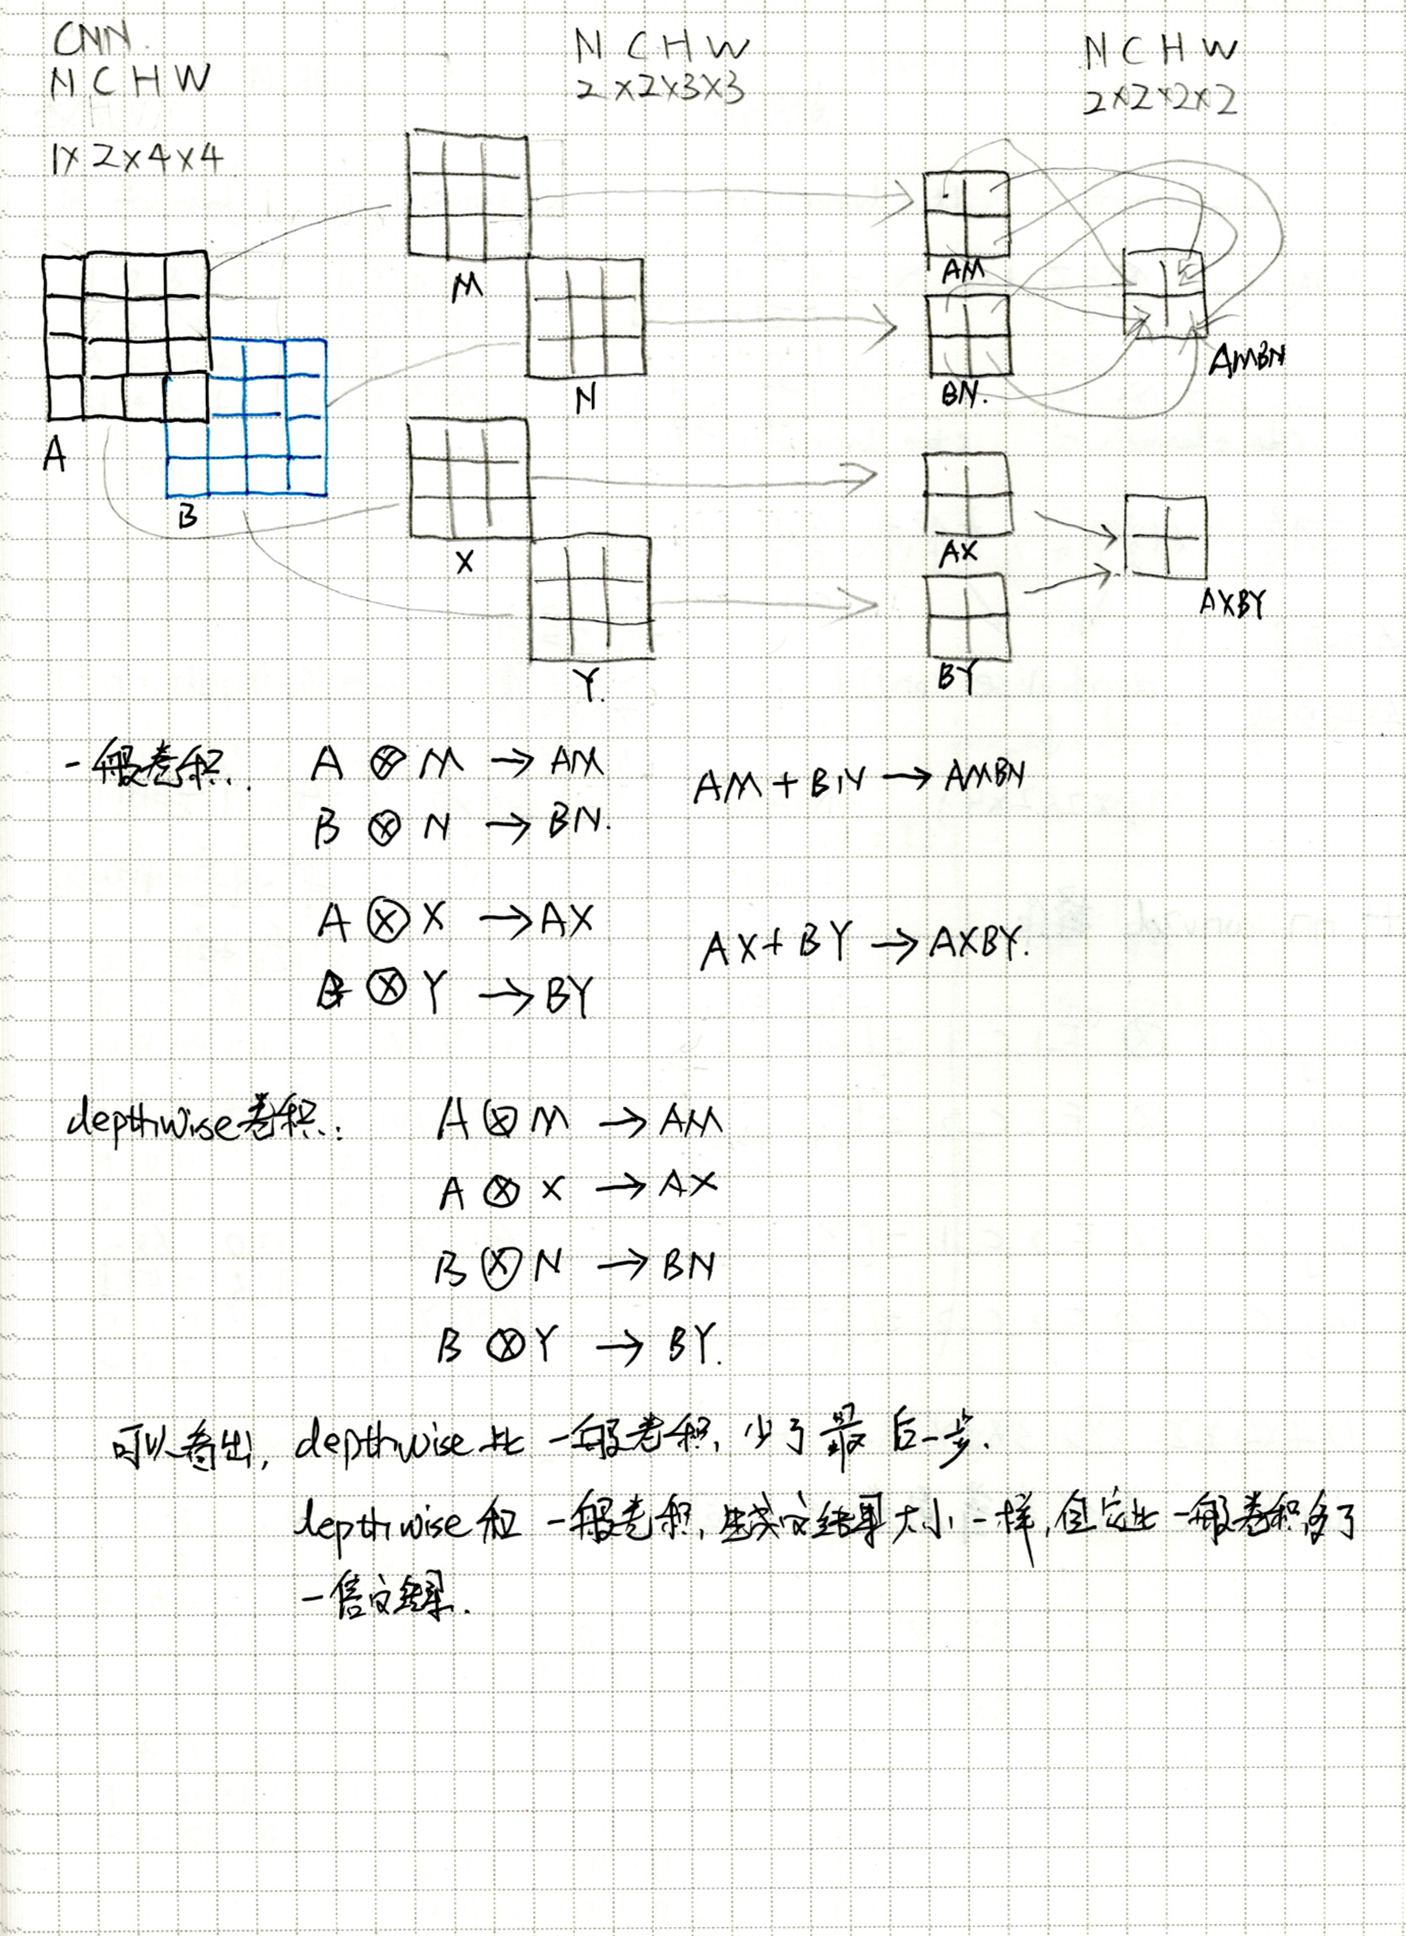 CNN.
N C H W
1×2×4×4
N C H W
2×2×3×3
N C H W
2×2×2×2
A
B
M
N
X
Y.
AM
BN.
AMBN
AX
BY
AXBY
一般卷积.
A ⊗ M → AM
B ⊗ N → BN.
AM + BN → AMBN
A ⊗ X → AX
B ⊗ Y → BY
AX + BY → AXBY.
depthwise卷积:
A ⊗ M → AM
A ⊗ X → AX
B ⊗ N → BN
B ⊗ Y → BY.
可以看出, depthwise 比 一般卷积, 少了最后一步.
depthwise 和 一般卷积, 生成的结果大小一样, 但它比一般卷积多了
一倍的结果.